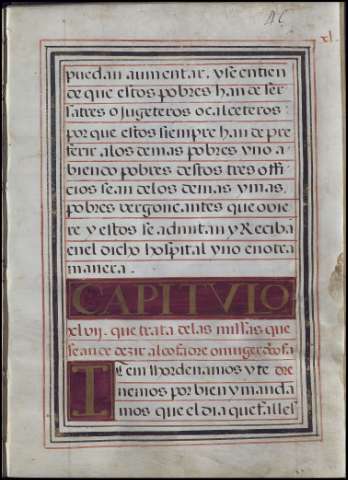 xl.
puedan aumentar. yseentien
de que estos pobres han de ser
sastres o jugeteros o calceteros:
porque estos siempre han de pre
ferir alos demas pobres yno a
biendo pobres destos tres offi
cios sean delos demas ymas,
pobres vergonçantes que obie
re y estos se admitan y Reciba
enel dicho hospital yno en otra
manera.
CAPITVLO
xlvii. que trata delas missas que
se an de dezir al cofadre o muger d cofa
Item Hordenamos y te orde
nemos por bien y manda
mos que el dia que fallef